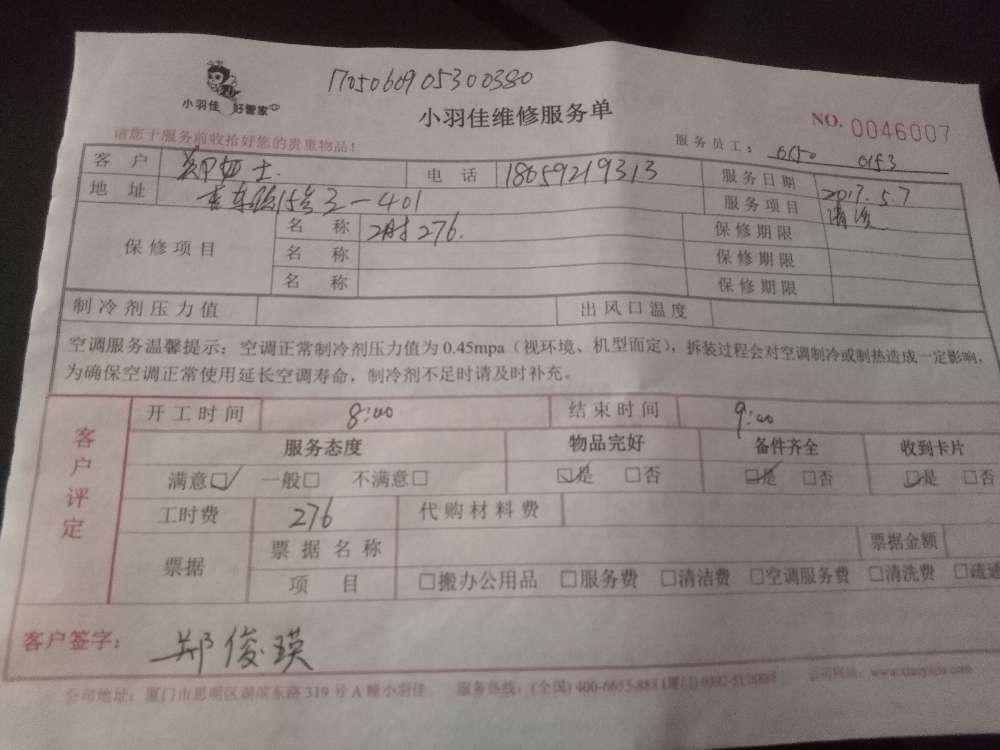 小羽佳 好管家
1705060905300380
小羽佳维修服务单
NO. 0046007
请您于服务前收拾好您的贵重物品！
服务员工： 0150 0153
客户 郑女士 电话 18659219313 服务日期 2017.5.7
地址 15号 2-401 服务项目 清洗
保修项目 名称 2时 276. 保修期限
名称 保修期限
名称 保修期限
制冷剂压力值 出风口温度
空调服务温馨提示：空调正常制冷剂压力值为0.45mpa（视环境、机型而定），拆装过程会对空调制冷或制热造成一定影响，
为确保空调正常使用延长空调寿命，制冷剂不足时请及时补充。
客户评定
开工时间 8:00 结束时间 9:00
服务态度 物品完好 备件齐全 收到卡片
满意☑ 一般□ 不满意□ ☑是 □否 ☑是 □否 ☑是 □否
工时费 276 代购材料费
票据 票据名称 票据金额
项目 □搬办公用品 □服务费 □清洁费 □空调服务费 □清洗费 □疏通
客户签字： 郑俊瑛
公司地址：厦门市思明区湖滨东路319号A幢小羽佳 服务热线：(全国) 400-6655-888 (厦门) 公司网站：